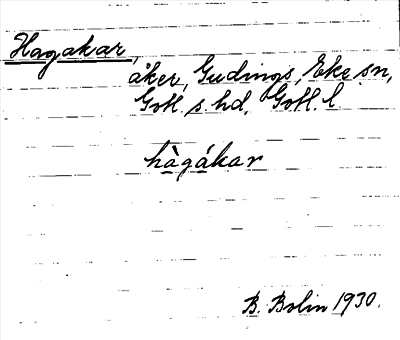 Hagakar,
åker, Gudings, Eke sn,
Gotl. s. hd. Gotl. l.
hàgákar
B. Bolin 1930.